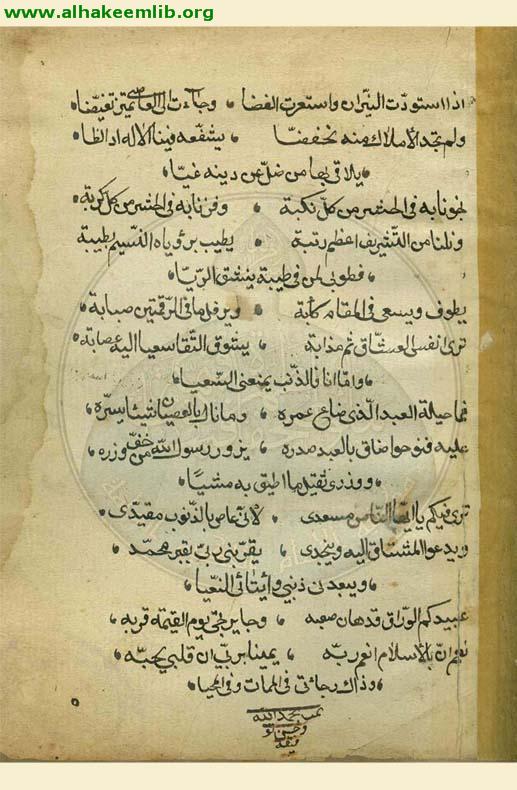 www.alhakeemlib.org
اذا اسودت النيران واستعرت الغضا وجاءت الى العاصي تميز تغيضا
ولم تجد الأملاك منه تخفضا يشفعه فينا الاله اذا لظا
يلاقي بها من ضل عن دينه غيا
نجونا به في الحشر من كل نكبة وفزنا به في الحشر من كل كربة
ونلنا من التشريف اعظم رتبة يطيب برؤياه النسيم بطيبة
فطوبى لمن في طيبة ينشق الريا
يطوف ويسعى في المقام كآبة ويرفل ما في الرقمتين صبابة
ترى انفس العشاق ثم مذابة يشوق التقا سعيا اليه عصابة
واما انا فالذنب يمنعني السعيا
فما حيلة العبد الذي ضاع عمره وما نال بالعصيان شيئا يسره
عليه فنوحوا ضاق بالعبد صدره يزور رسول الله من خف وزره
ووزري ثقيل ما اطيق به مشيا
ترى فيكم يا ايها الناس مسعدي لأني عاص بالذنوب مقيدي
ويدعو المشتاق اليه وينجدي يقربني ربي بقبر محمد
ويبعدني ذنبي
عبيدكم الوراق قد هان صعبه وجايزتي يوم القيمة قربه
نعم ان بالأسلام انعم ربه يمينا بربي ان قلبي يحبه
وذاك رجائي في الممات وفي المحيا
تمت بحمد الله